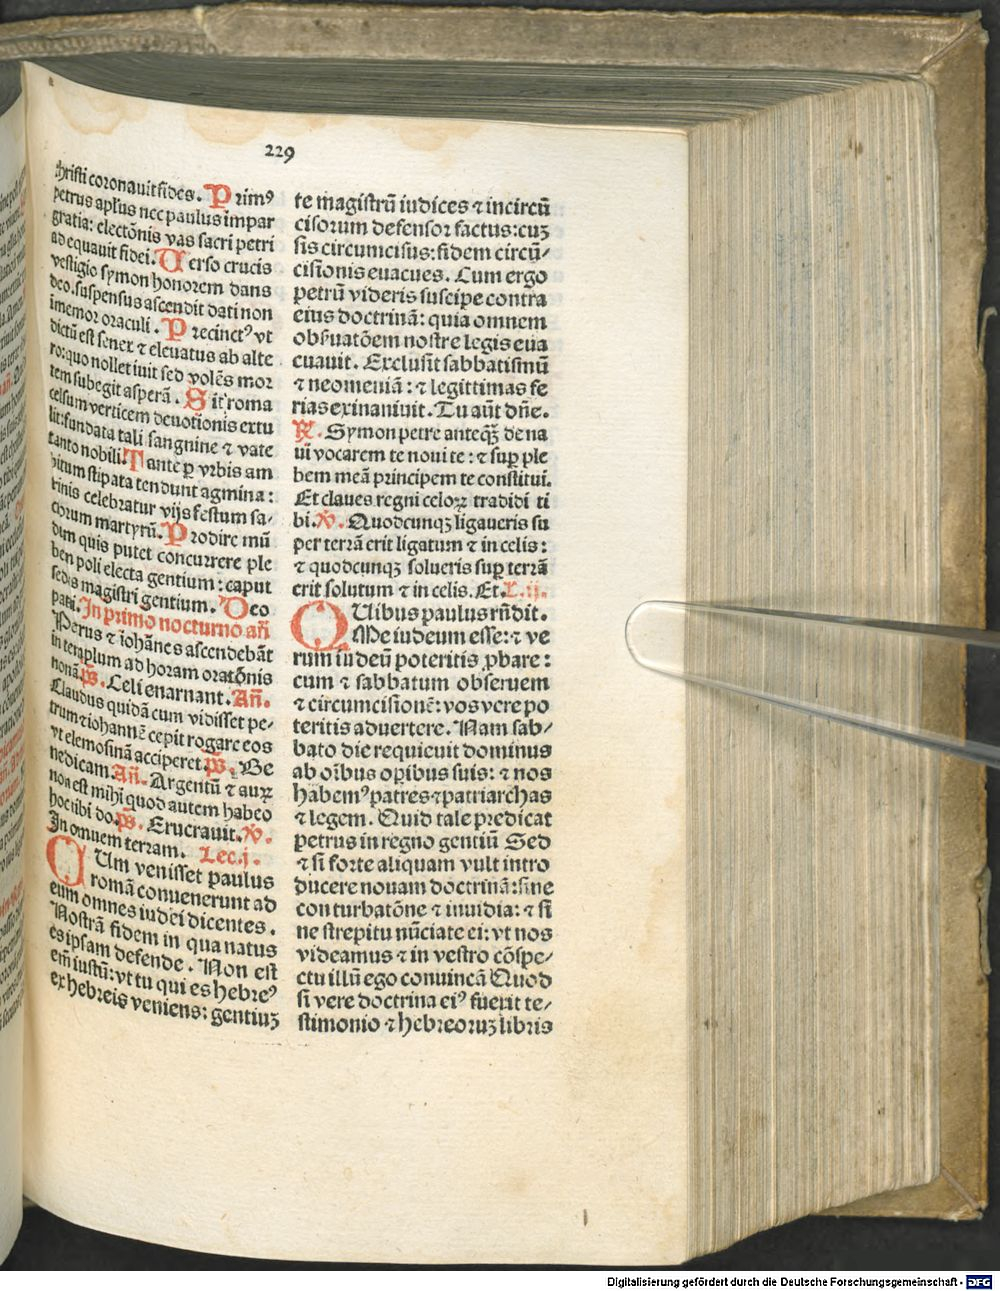 229
christi coronauit fides. Primꝰ
petrus apl̄us nec paulus impar
gratia: electōnis vas sacri petri
adequauit fidei. Uerso crucis
vestigio symon honorem dans
deo. suspensus ascendit dati non
īmemor oraculi. Precinctꝰ vt
dictū est senex ⁊ eleuatus ab alte
ro: quo nollet iuit sed volēs mor
tem subegit asperā. Sit roma
celsum verticem deuotionis extu
lit: fundata tali sangnine ⁊ vate
tanto nobili. Tante ꝑ vrbis am
bitum stipata tendunt agmina:
trinis celebratur vijs festum sa-
crorum martyrū. Prodire mū
dum quis putet concurrere ple
ben poli electa gentium: caput
sedis magistri gentium. Deo
patri. In primo nocturno añ
Petrus ⁊ iohānes ascendebāt
in templum ad horam oratōnis
nonā. p̄s. Celi enarnant. Añ.
Claudus quidā cum vidisset pe-
trum ⁊ iohannē cepit rogare eos
vt elemosinā acciperet. p̄s. Be
nedicam. Añ. Argentū ⁊ auꝝ
non est mihi quod autem habeo
hoc tibi do. p̄s. Eructauit. ℣.
In omnem terram. Lec. j.
CUm venisset paulus
romā conuenerunt ad
eum omnes iudei dicentes.
Nostrā fidem in qua natus
es ipsam defende. Non est
em̄ iustū: vt tu qui es hebreꝰ
ex hebreis veniens: gentiuꝫ
te magistrū iudices ⁊ incircū
cisorum defensor factus: cuꝫ
sis circumcisus: fidem circū-
cisiōnis euacues. Cum ergo
petrū videris suscipe contra
eius doctrinā: quia omnem
obẜuatōem nostre legis eua
cuauit. Exclusit sabbatismū
⁊ neomeniā: ⁊ legittimas fe
rias exinaniuit. Tu aūt dn̄e.
℟. Symon petre anteqꝫ̄ de na
ui vocarem te noui te: ⁊ suꝑ ple
bem meā principem te constitui.
Et claues regni celoꝝ tradidi ti
bi. ℣. Quodcunqꝫ ligaueris su
per terrā erit ligatum ⁊ in celis:
⁊ quodcunqꝫ solueris suꝑ terrā
erit solutum ⁊ in celis. Et. L. ij.
QUibus paulus rn̄dit.
Me iudeum esse: ⁊ ve
rum iudeū poteritis ꝓbare:
cum ⁊ sabbatum obseruem
⁊ circumcisionē: vos vere po
teritis aduertere. Nam sab-
bato die requieuit dominus
ab oībus oꝑibus suis: ⁊ nos
habemꝰ patres ⁊ patriarchas
⁊ legem. Quid tale predicat
petrus in regno gentiū Sed
⁊ si forte aliquam vult intro
ducere nouam doctrinā: sine
conturbatōne ⁊ inuidia: ⁊ si
ne strepitu nūciate ei: vt nos
videamus ⁊ in vestro cōspe-
ctu illū ego conuincā Quod
si vere doctrina eiꝰ fuerit te-
stimonio ⁊ hebreoruꝫ libris
Digitalisierung gefördert durch die Deutsche Forschungsgemeinschaft - DFG